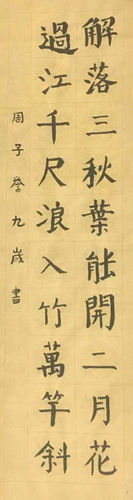 解落三秋葉能開二月花
過江千尺浪入竹萬竿斜
周子誉九歲書